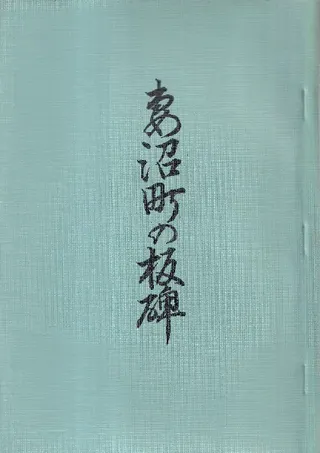 妻沼町の板碑